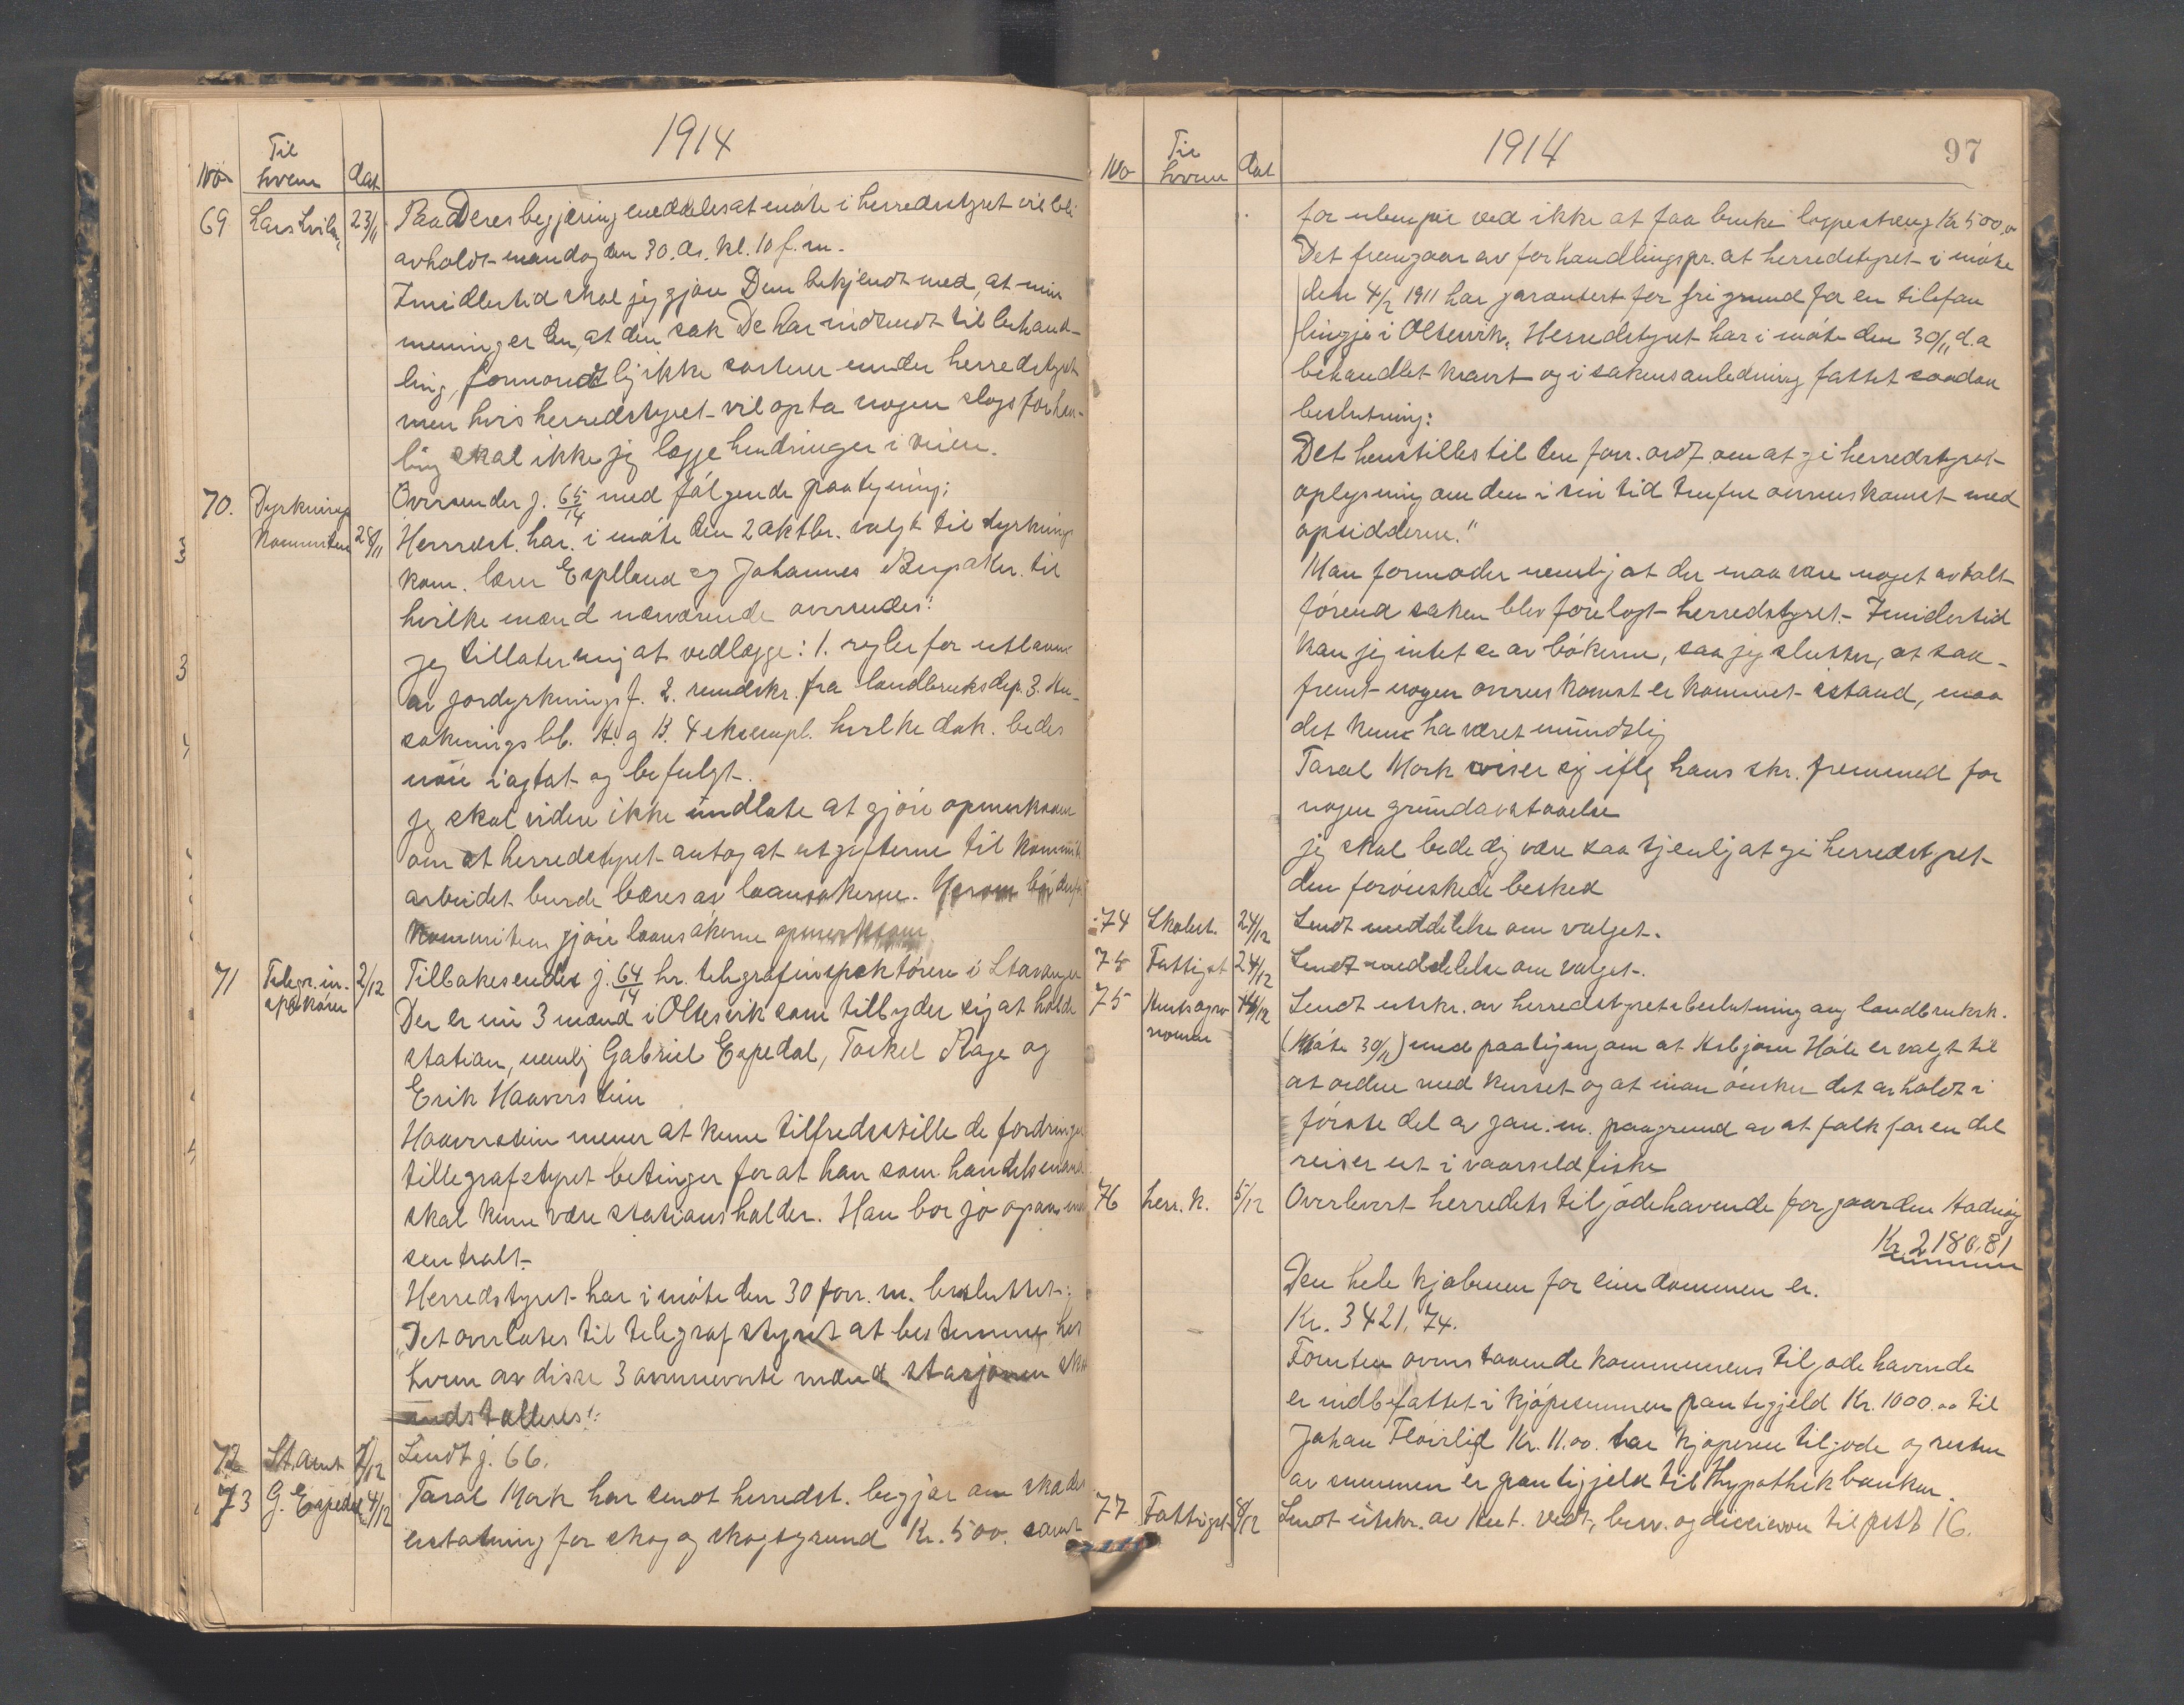 1914
No Til hvem dat
69 Lars Lvila 23/11 Paa Deres begjæring meddeles at møte i herredstyret vil bli
avholdt mandag den 30. ds. kl. 10 f.m.
Imidlertid skal jeg gjøre Dem bekjendt med, at min
mening er den, at den sak De har indsendt til behand-
ling, formentlig ikke sorterer under herredstyret
men hvis herredstyret vil opta nogen slags forhan-
ling skal ikke jeg lægge hindringer i veien.
70. Dyrknings Oversender j. 65/14 med følgende paategning:
Kommiteen 28/11 Herredst. har i møte den 2 oktbr. valgt til dyrknings
kom. lærer Espeland og Johannes til
hvilke mænd nærværende oversendes:
jeg tillater mig at vedlægge: 1. regler for utlaan
av jordyrkningsf. 2. rundskr. fra landbruksdep. 3. An-
søknings bl. A. og B. 4 eksempl. hvilke dok. bedes
nøie iagtat og befulgt.
jeg skal videre ikke undlate at gjøre opmerksom
om at herredstyret antog at utgifterne til kommite
arbeidet burde bæres av laansøkerne.
Kommiteen gjøre laansøkerne opmerksom
71 Telegr. in- 2/12 Tilbakesendes j. 64/14 hr. telegrafinspektøren i Stavanger
spektøren Der er nu 3 mænd i Oltesvik som tilbyder sig at holde
station, nemlig Gabriel Espedal, Torkel Rage og
Erik Haaverstein
Haaverstein mener at kunne tilfredsstille de fordringer
tillegrafstyret betinger for at han som handelsmand
skal kunne være stationsholder. Han bor jo
sentralt.
Herredstyret har i møte den 30 forr. m. besluttet:
„Det overlates til telegrafstyret at bestemme hos
hvem av disse 3 ovennevnte mænd stasjonen skal
indstalleres".
72 St. amt 2/12 Sendt j. 66.
73 G. Espedal 4/12 Taral Mork har sendt herredst. begjær om skades
erstatning for skog og skogsgrund Kr. 500. samt
1914 97
No Til hvem dat
for ulempe ved ikke at faa bruke løypestreng Kr 500,00
Det fremgaar av forhandlingspr. at herredstyret i møte
den 4/2 1911 har garantert for fri grund for en telefon
linje i Oltesvik. Herredstyret har i møte den 30/11 d.a
behandlet kravet og i sakens anledning fattet saadan
beslutning:
Det henstilles til den forr. ordf. om at gi herredstyret
oplysning om den i sin tid trufne overenskomst med
opsidderne."
Man formoder nemlig at der maa være noget avtalt
førend saken blev forelagt herredstyret. Imidertid
kan jeg intet se av bøkerne, saa jeg slutter, at saa-
fremt nogen overenskomst er kommet istand, maa
det kun ha været mundtlig
Taral Mork viser sig ifølg hans skr. fremmed for
nogen grundavstaaelse
jeg skal bede dig være saa tjenlig at gi herredstyret
den forønskede besked
74 Skolest. 24/12 Sendt meddelelse om valget.
75 Fattigst 24/12 Sendt meddelelse om valget.
75 Amtsagro- 4/12 Sendt utskr. av herredstyretsbeslutning ang landbruksk.
nomen (Møte 30/11) med paategning om at Asbjørn Høle er valgt til
at ordne med kurset og at man ønsker det avholdt i
første del av jan. m. paagrund av at folk for en del
reiser ut i vaarsildfiske
76 herr. k. 5/12 Overlevert herredets tilgodehavende for gaarden Aadnøy
Kr. 2180.81
Den hele kjøbesum for eiendommen er.
Kr. 3421,74.
Foruten ovenstaaende kommunens tilgodehavende
er indbefattet i kjøpesummen pantegjeld Kr. 1000.00 til
Johan Fløirlid Kr. 11.00. har kjøperne tilgode og resten
av summen er pantegjeld til Hypothekbanken.
77 Fattigst 8/12 Sendt utskr. av Rev. vedt., besv. og decisioner til post 16.